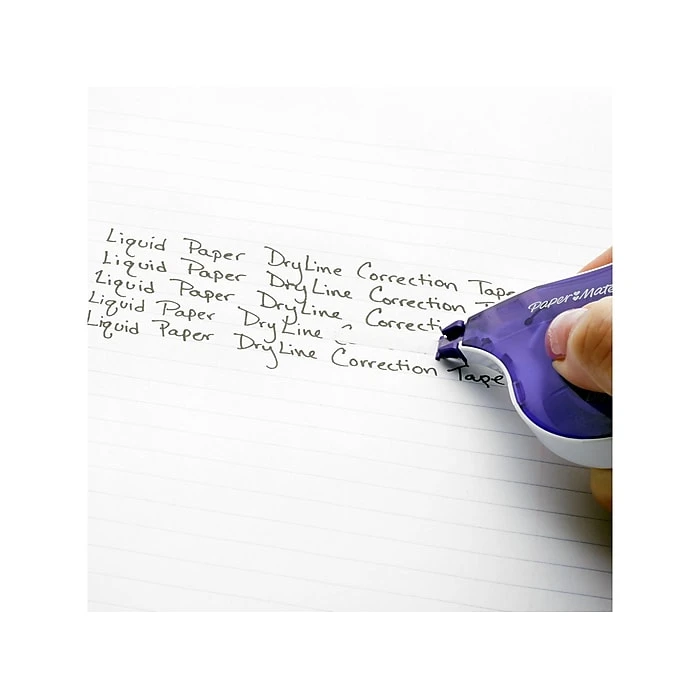 Liquid Paper DryLine Correction Tape
Liquid Paper DryLine Correction
Liquid Paper DryLine Correcti
Liquid Paper DryLine
Liquid Paper DryLine Correction Tape
Paper Mate